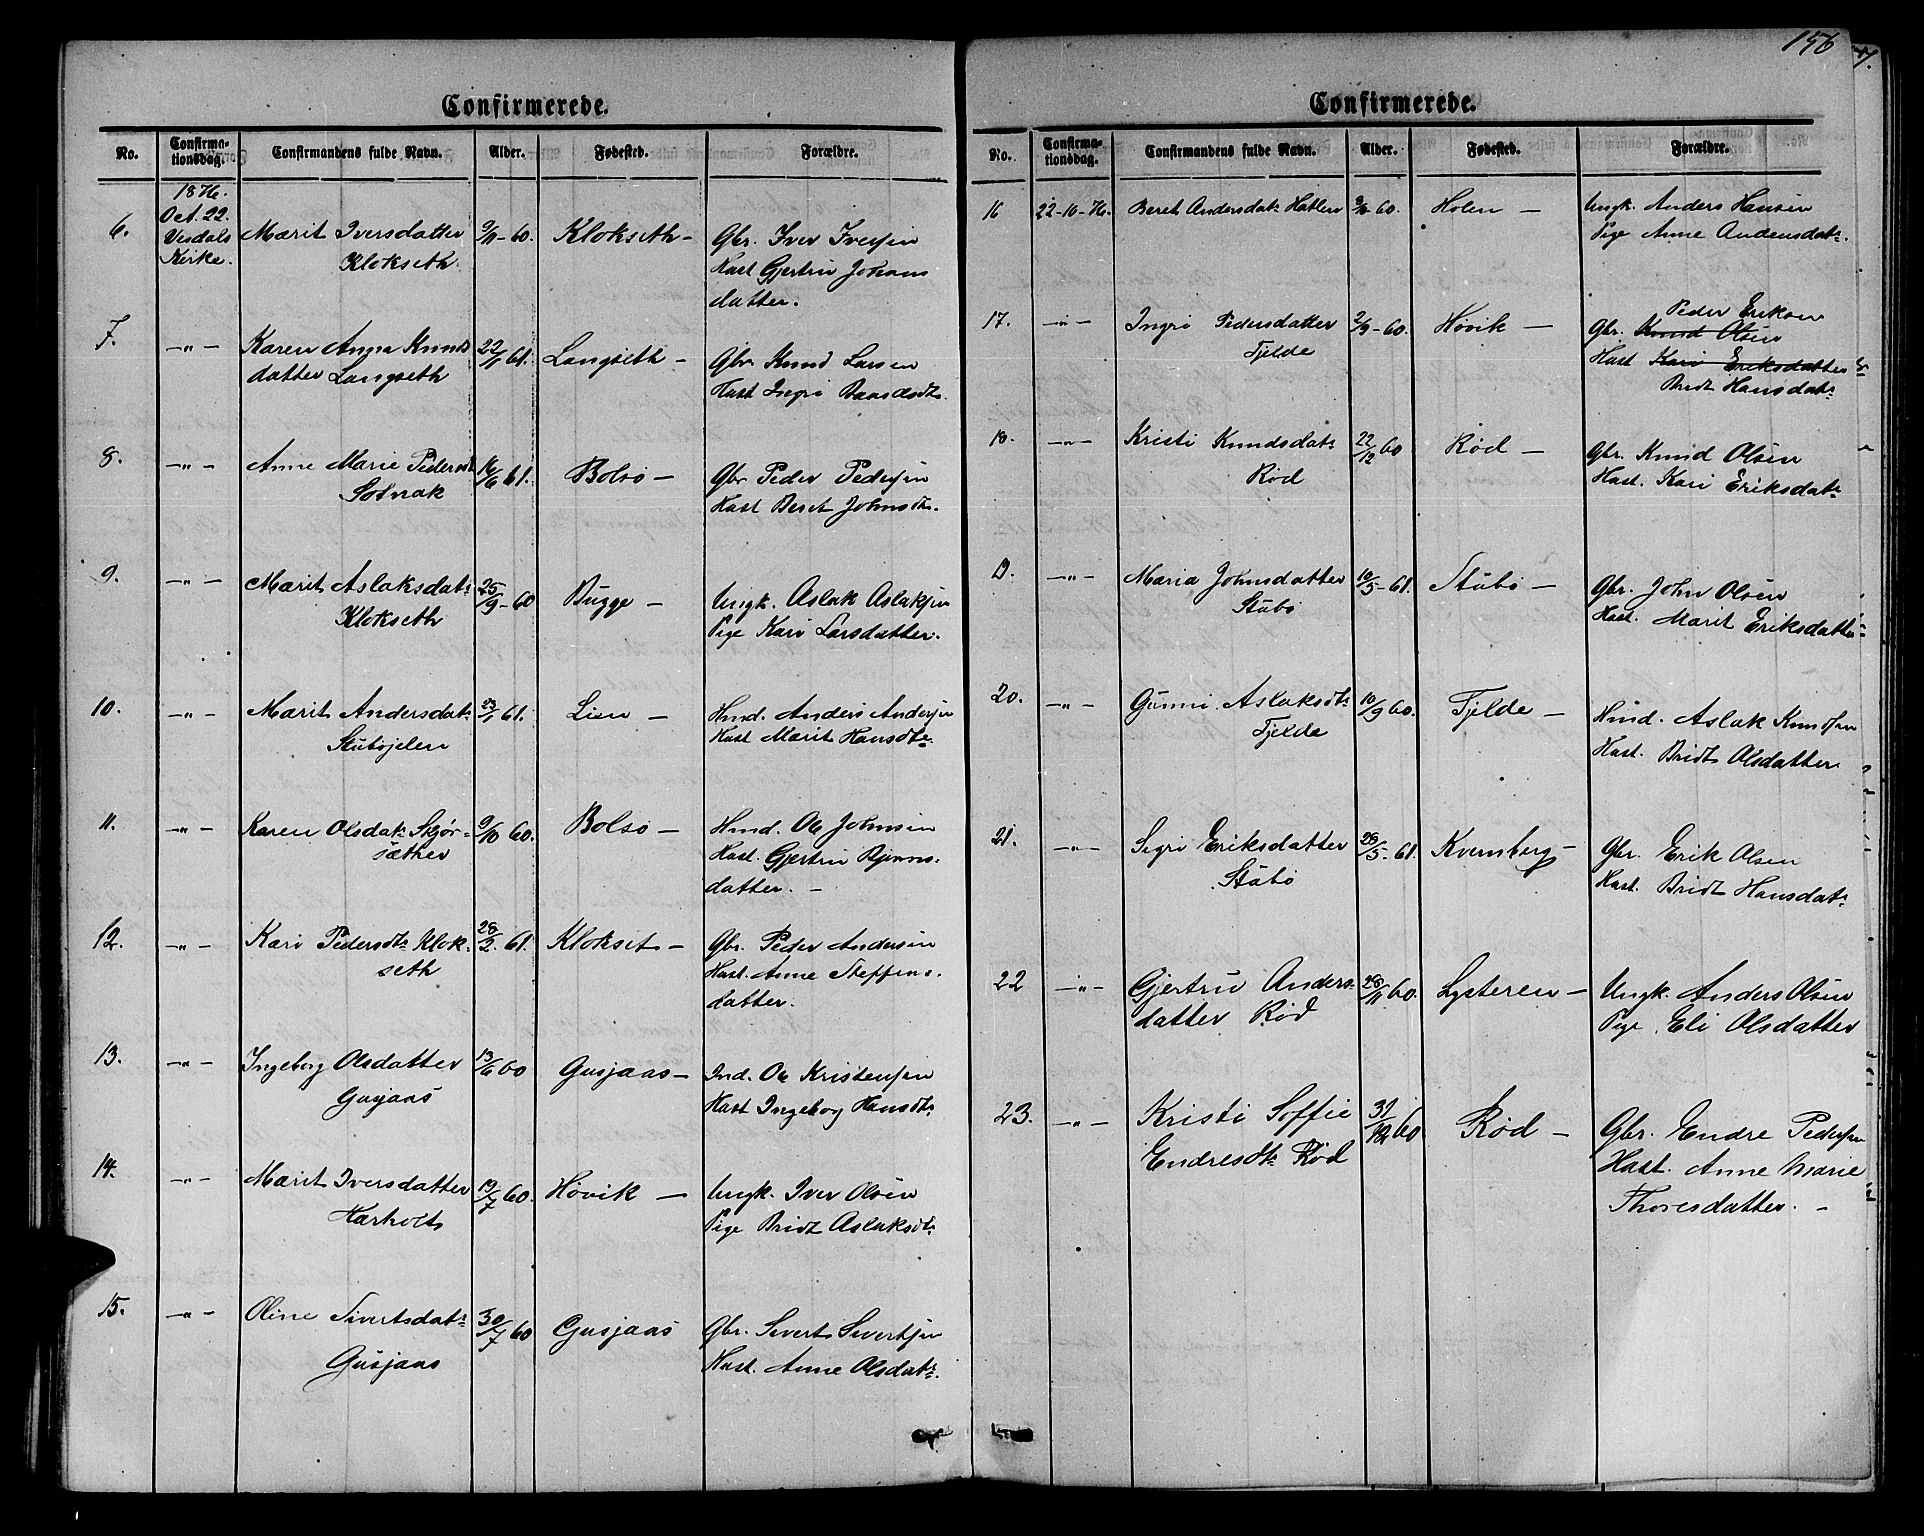 Confirmerede.
No. Confirma-tionsdag. Confirmandens fulde Navn. Alder. Fødested. Forældre.
1876.
Oct. 22.
Vesdals
Kirke.
6. Marit Iversdatter 9/11-60. Klokseth - Gbr. Iver Iversen
Klokseth. Hust Gjertru Johans
datter.
7. -"- Karen Anna Knuds 22/1 61. Langseth - Gbr Knud Larsen
datter Langseth Hust Ingri Baardsdtr.
8. -"- Anne Marie Pedersdt 16/6 61. Bolsø - Gbr Peder Pedersen
Solnak Hust Beret Johnsdtr.
9. -"- Marit Aslaksdatr 25/9-60 Bugge - Ungk. Aslak Aslaksen
Klokseth Pige Kari Larsdatter.
10. -"- Marit Andersdatr 23/1 61. Lien - Hmd. Anders Andersen
Stubøjelen Hust Marit Hansdtr.
11. -"- Karen Olsdatr Skjør- 9/10 60. Bolsø - Hmd. Ole Johnsen
sæther Hust. Gjertru Bjørns-
datter. -
12. -"- Kari Pedersdtr Klok- 28/2. 61. Klokset - Gbr. Peder Andersen
seth Hust. Anne Steffens-
datter.
13. -"- Ingeborg Olsdatter 13/6 60 Gusjaas - Ind. Ole Kristensen
Gusjaas Hust Ingeborg Hansdtr
14. -"- Marit Iversdatter 19/7 60. Høvik - Ungk. Iver Olsen
Harholt Pige Bridt Aslaksdtr
15. -"- Oline Sivertsdatr 30/7 60 Gusjaas Gbr. Sivert Sivertsen
Gusjaas Hust. Anne Olsdatr.
156
Confirmerede.
No. Confirma-tionsdag. Confirmandens fulde Navn. Alder. Fødested. Forældre.
16 22-10-76. Beret Andersdatr Hatlen 9/8-60. Holen - Ungk. Anders Hansen
Pige Anne Andersdatr.
Peder Eriksen
17. -"- Ingri Pedersdatter 2/9-60. Høvik - Gbr. Knud Olsen
Fjelde Hust Kari Eriksdatter
Bridt Hansdatr
18. -"- Kristi Knudsdatr 22/12 60 Rød - Gbr. Knud Olsen
Rød Hust. Kari Eriksdatr
19. -"- Maria Johnsdatter 10/5-61. Stubø - Gbr. John Olsen
Stubø Hust. Marit Eriksdatter
20. -"- Gunni Aslaksdtr 10/9 60. Fjelde - Hmd. Aslak Knudsen
Fjelde Hust. Bridt Olsdatter
21. -"- Sigri Eriksdatter 28/5-61. Kvernberg - Gbr. Erik Olsen
Stubø Hust. Bridt Hansdatr
22 -"- Gjertru Anders- 28/11 60. Lysteren - Ungk. Anders Olsen
datter Rød Pige Eli Olsdatter
23. -"- Kristi Soffie 31/12 60 Rød - Gbr. Endre Pedersen
Endresdtr Rød Hust. Anne Marie
Thoresdatter. -